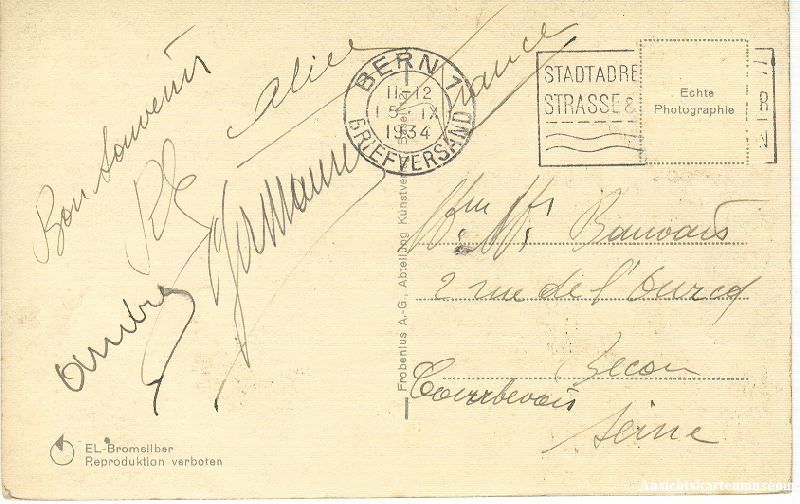 Bon Souvenir
Alice
André
Germaine
BERN 1
11-12
15. IX
1934
BRIEFVERSAND
STADTADRE
STRASSE &
Echte
Photographie
France
Frobenius A.-G. Abteilung Kunstve
Beauvais
2 rue de l'Ourcq
Becon
Courbevoie
Seine
EL-Bromsilber
Reproduktion verboten
Ansichtskartenmuseum